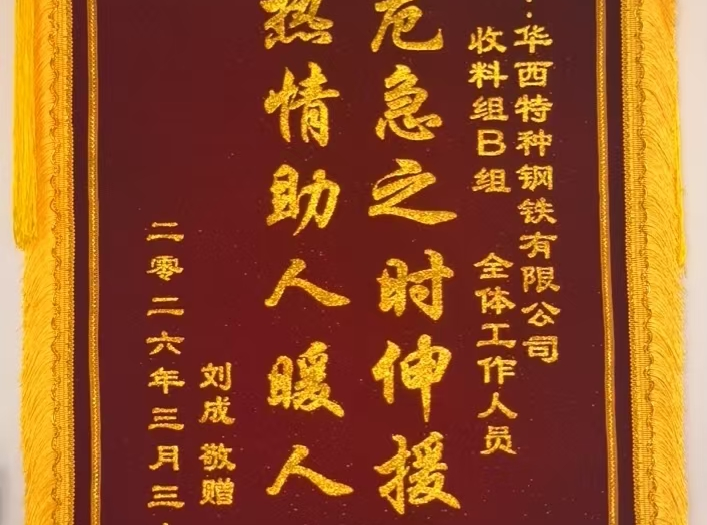 ：华西特种钢铁有限公司
收料组B组 全体工作人员
危急之时伸援
热情助人暖人
刘成 敬赠
二零二六年三月三